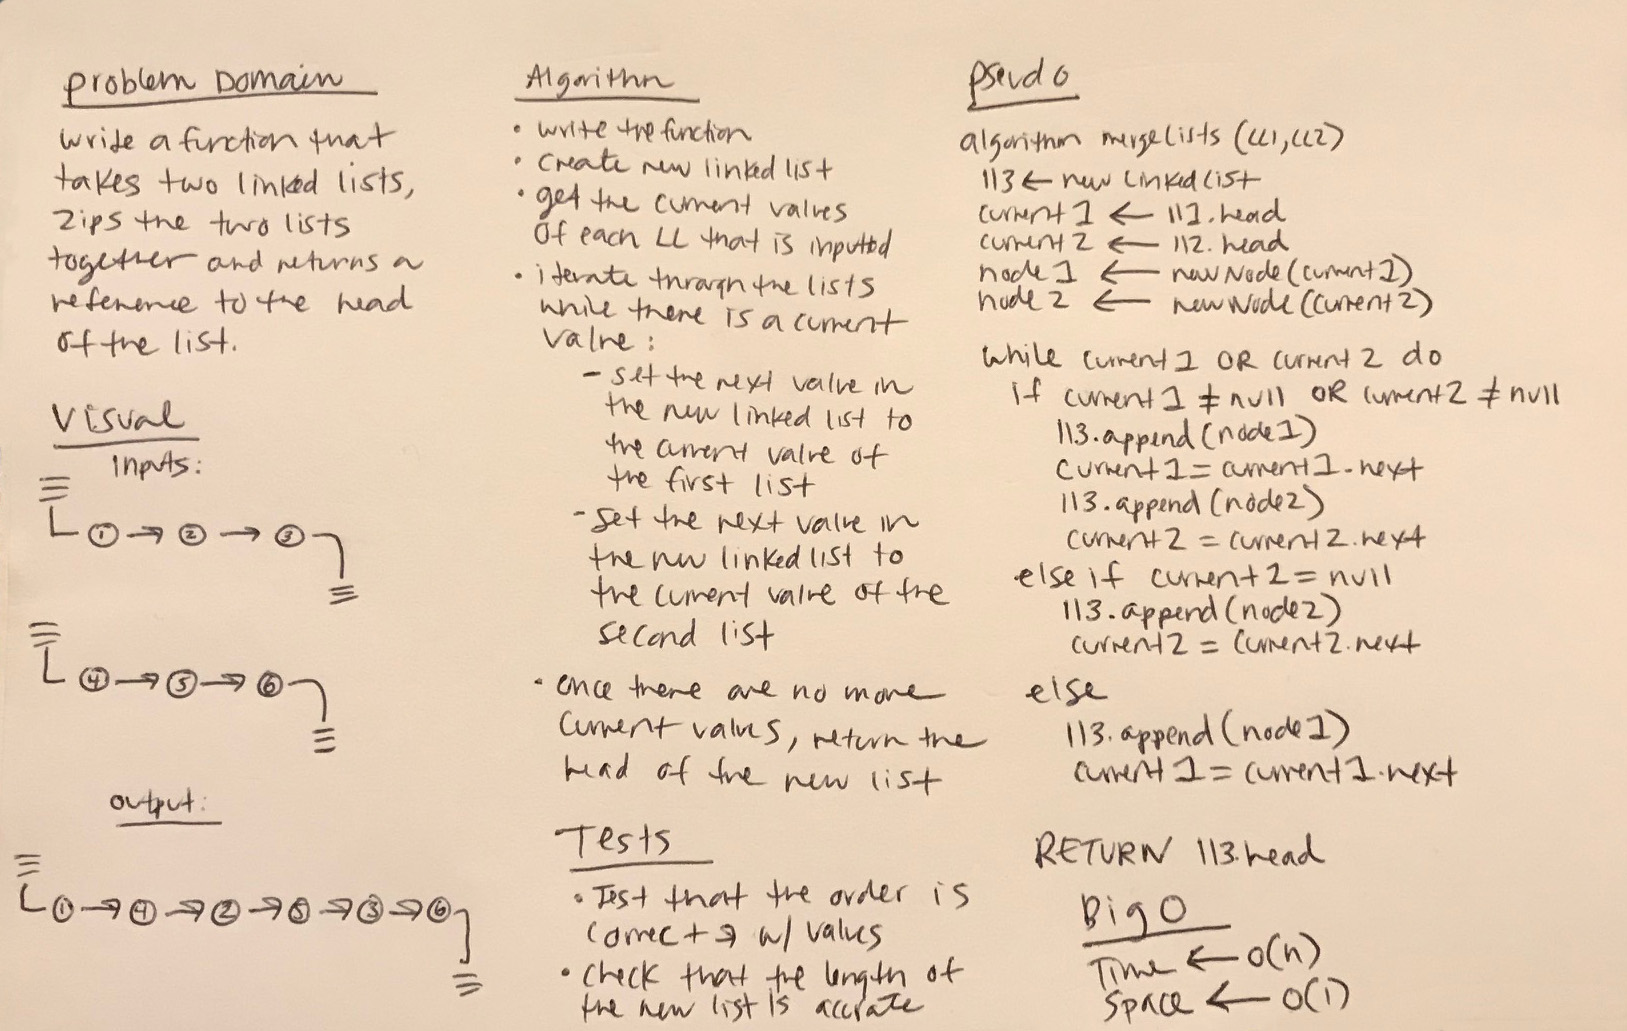 problem Domain
write a function that
takes two linked lists,
zips the two lists
together and returns a
reference to the head
of the list.
Visual
Inputs:
1 → 2 → 3
4 → 5 → 6
output:
1 → 4 → 2 → 5 → 3 → 6
Algorithm
• write the function
• create new linked list
• get the current values
of each LL that is inputted
• iterate through the lists
while there is a current
value:
- set the next value in
the new linked list to
the current value of
the first list
- set the next value in
the new linked list to
the current value of the
second list
• once there are no more
current values, return the
head of the new list
Tests
• Test that the order is
correct w/ values
• check that the length of
the new list is accrate
psevdo
algorithm mergeLists (LL1, LL2)
ll3 ← new LinkedList
current1 ← ll1.head
current2 ← ll2.head
node1 ← newNode(current1)
node2 ← newNode(current2)
while current1 OR current2 do
if current1 ≠ null OR current2 ≠ null
ll3.append(node1)
current1 = current1.next
ll3.append(node2)
current2 = current2.next
else if current2 = null
ll3.append(node2)
current2 = current2.next
else
ll3.append(node1)
current1 = current1.next
RETURN ll3.head
Big O
Time ← O(n)
Space ← O(1)